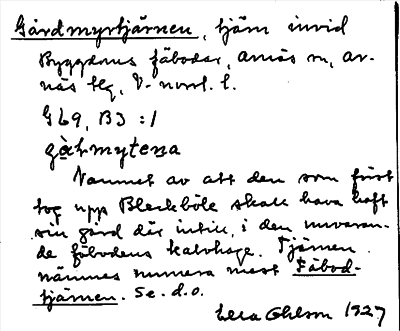 Gårdmyrtjärnen, tjärn invid
Byggdens fäbodar, Arnäs sn, Ar-
näs tg, V-norrl. l.
G L9, B3 :1
gàrmytena
Namnet av att den som först
tog upp Bleckböle skall hava haft
sin gård där intill, i den nuvaran-
de fäbodens kalvhage. Tjärnen
nämnes numera mest Fäbod-
tjärnen. Se d.o.
Ohlson 1927